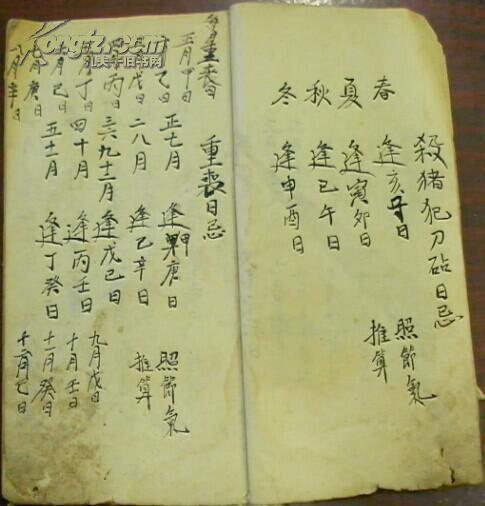 殺猪犯刀砧日忌
春 逢亥子日
夏 逢寅卯日
秋 逢巳午日
冬 逢申酉日
照節氣
推算
重喪日忌
正七月 逢甲庚日
二八月 逢乙辛日
三六九十二月 逢戊己日
四十月 逢丙壬日
五十一月 逢丁癸日
照節氣
推算
重喪日
正月甲日
乙日
戊日
四月丙日
五月丁日
六月己日
七月庚日
八月辛日
九月戊日
十月壬日
十一月癸日
十二月己日